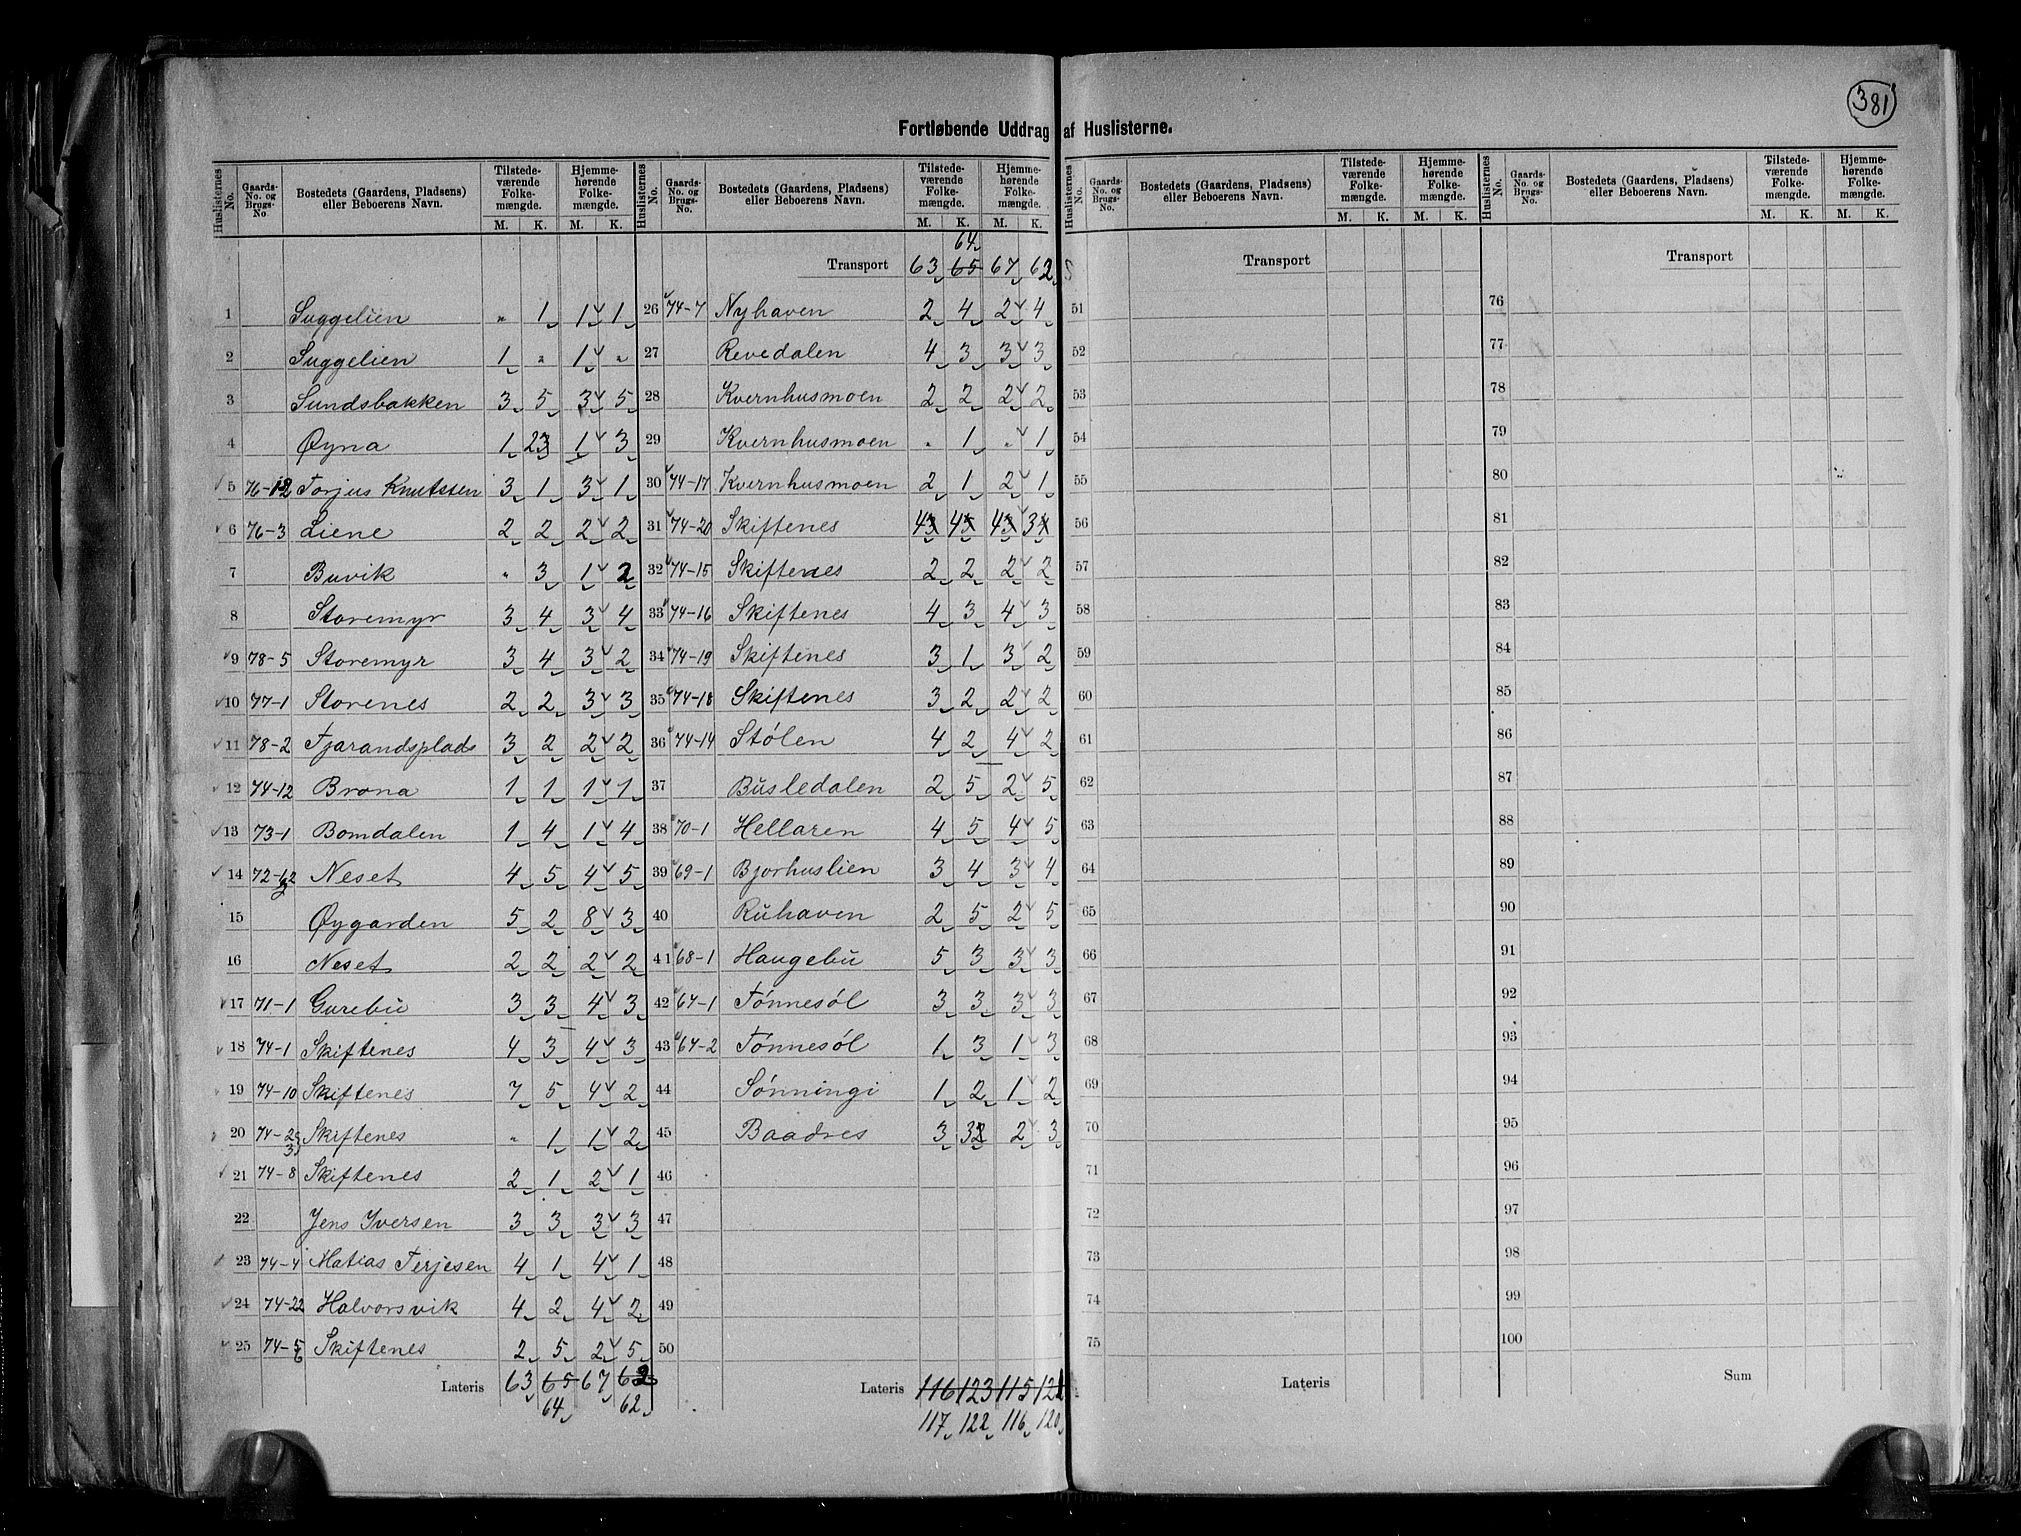 381
Fortløbende Uddrag af Huslisterne.
Huslisternes No. | Gaards-No. og Brugs-No | Bostedets (Gaardens, Pladsens) eller Beboerens Navn. | Tilstedeværende Folkemængde. M. K. | Hjemmehørende Folkemængde. M. K.
1 Suggelien „ 1 1 1
2 Suggelien 1 „ 1 „
3 Sundsbakken 3 5 3 5
4 Øyna 1 3 1 3
5 76-12 Torjus Knutsten 3 1 3 1
6 76-3 Liene 2 2 2 2
7 Buvik „ 3 1 2
8 Storemyr 3 4 3 4
9 78-5 Storemyr 3 4 3 2
10 77-1 Storenes 2 2 3 3
11 78-2 Fjarandsplads 3 2 2 2
12 74-12 Brona 1 1 1 1
13 73-1 Bomdalen 1 4 1 4
14 72-12 Neset 4 5 4 5
15 Øygarden 5 2 8 3
16 Neset 2 2 2 2
17 71-1 Gurebu 3 3 4 3
18 74-1 Skiftenes 4 3 4 3
19 74-10 Skiftenes 7 5 4 2
20 74-2 3 Skiftenes „ 1 1 2
21 74-8 Skiftenes 2 1 2 1
22 Jens Iversen 3 3 3 3
23 74-4 Matias Terjesen 4 1 4 1
24 74-22 Halvorsvik 4 2 4 2
25 74-5 6 Skiftenes 2 5 2 5
Lateris 63 65 67 62
64 62
Huslisternes No. | Gaards-No. og Brugs-No. | Bostedets (Gaardens, Pladsens) eller Beboerens Navn. | Tilstedeværende Folkemængde. M. K. | Hjemmehørende Folkemængde. M. K.
64
Transport 63 65 67 62
26 74-7 Nyhaven 2 4 2 4
27 Revedalen 4 3 3 3
28 Kvernhusmoen 2 2 2 2
29 Kvernhusmoen „ 1 „ 1
30 74-17 Kvernhusmoen 2 1 2 1
31 74-20 Skiftenes 4 4 4 3
32 74-15 Skiftenes 2 2 2 2
33 74-16 Skiftenes 4 3 4 3
34 74-19 Skiftenes 3 1 3 2
35 74-18 Skiftenes 3 2 2 2
36 74-14 Stølen 4 2 4 2
37 Busledalen 2 5 2 5
38 70-1 Hellaren 4 5 4 5
39 69-1 Bjorhuslien 3 4 3 4
40 Ruhaven 2 5 2 5
41 68-1 Haugebu 5 3 3 3
42 64-1 Tønnesøl 3 3 3 3
43 64-2 Tønnesøl 1 3 1 3
44 Sønningi 1 2 1 2
45 Baadnes 3 3 2 3
46
47
48
49
50
Lateris 116 123 115 121
117 122 116 120
Huslisternes No. | Gaards-No. og Brugs-No. | Bostedets (Gaardens, Pladsens) eller Beboerens Navn. | Tilstedeværende Folkemængde. M. K. | Hjemmehørende Folkemængde. M. K.
Transport
51
52
53
54
55
56
57
58
59
60
61
62
63
64
65
66
67
68
69
70
71
72
73
74
75
Lateris
Huslisternes No. | Gaards-No. og Brugs-No. | Bostedets (Gaardens, Pladsens) eller Beboerens Navn. | Tilstedeværende Folkemængde. M. K. | Hjemmehørende Folkemængde. M. K.
Transport
76
77
78
79
80
81
82
83
84
85
86
87
88
89
90
91
92
93
94
95
96
97
98
99
100
Sum